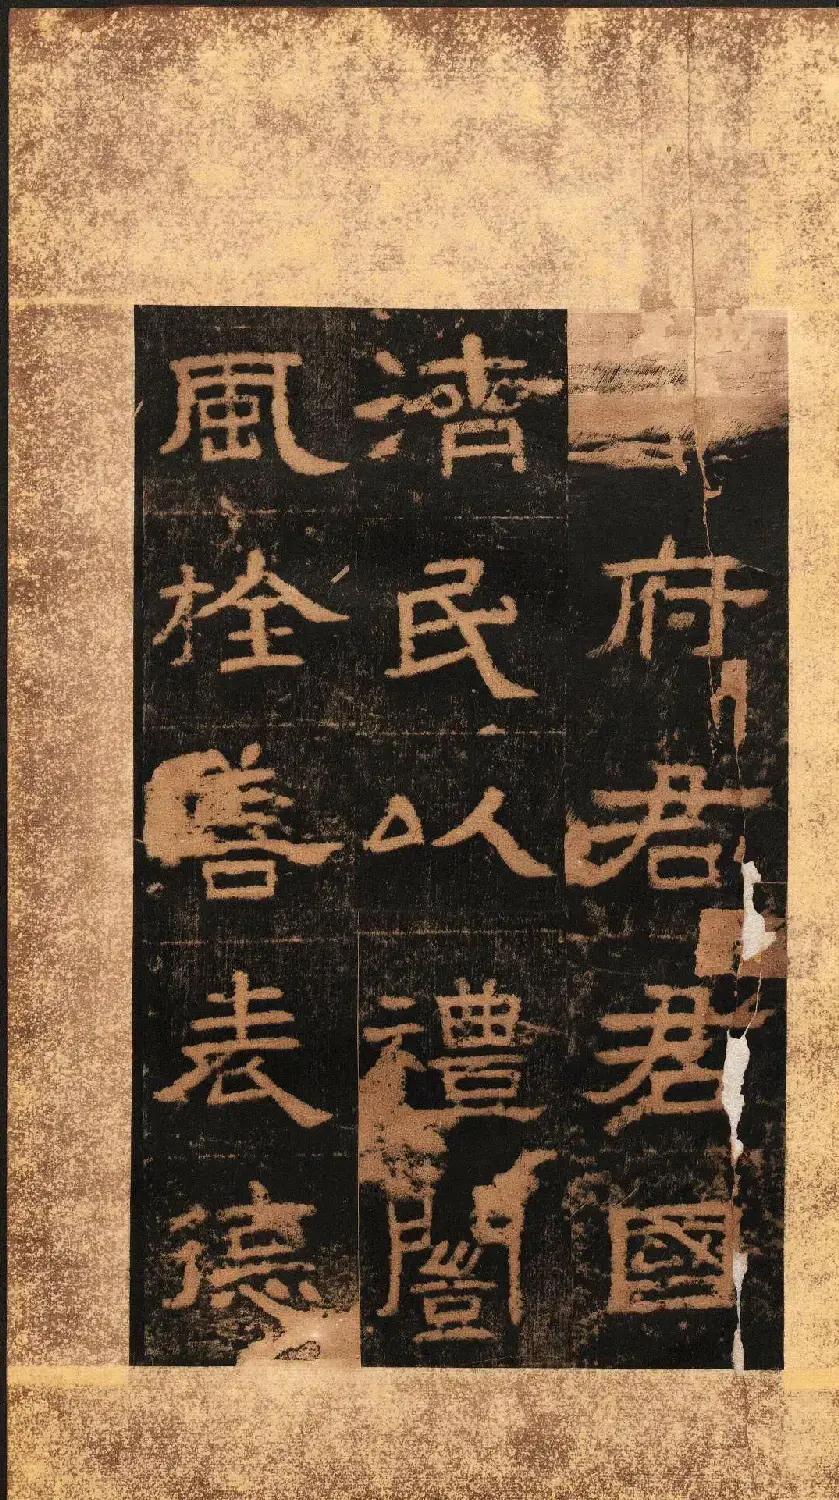 府君君國
濟民以禮闓
風栓善表德